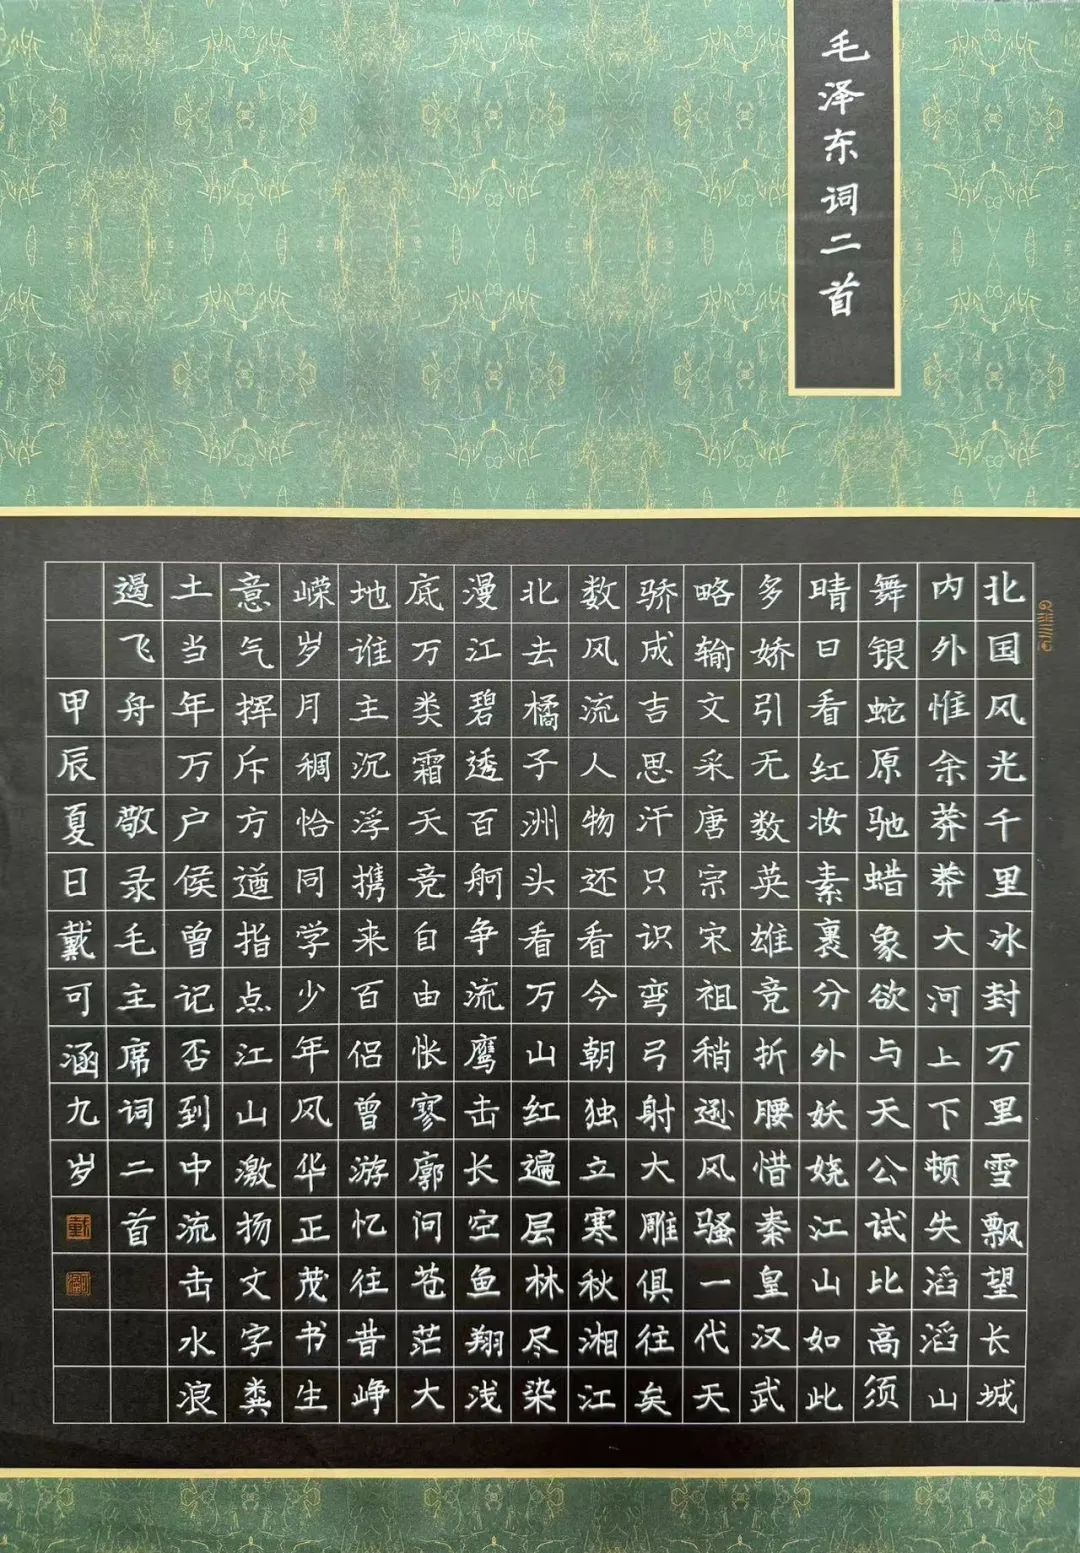 毛泽东词二首
北国风光千里冰封万里雪飘望长城
内外惟余莽莽大河上下顿失滔滔山
舞银蛇原驰蜡象欲与天公试比高须
晴日看红妆素裹分外妖娆江山如此
多娇引无数英雄竞折腰惜秦皇汉武
略输文采唐宗宋祖稍逊风骚一代天
骄成吉思汗只识弯弓射大雕俱往矣
数风流人物还看今朝独立寒秋湘江
北去橘子洲头看万山红遍层林尽染
漫江碧透百舸争流鹰击长空鱼翔浅
底万类霜天竞自由怅寥廓问苍茫大
地谁主沉浮携来百侣曾游忆往昔峥
嵘岁月稠恰同学少年风华正茂书生
意气挥斥方遒指点江山激扬文字粪
土当年万户侯曾记否到中流击水浪
遏飞舟 敬录毛主席词二首
甲辰夏日戴可涵九岁